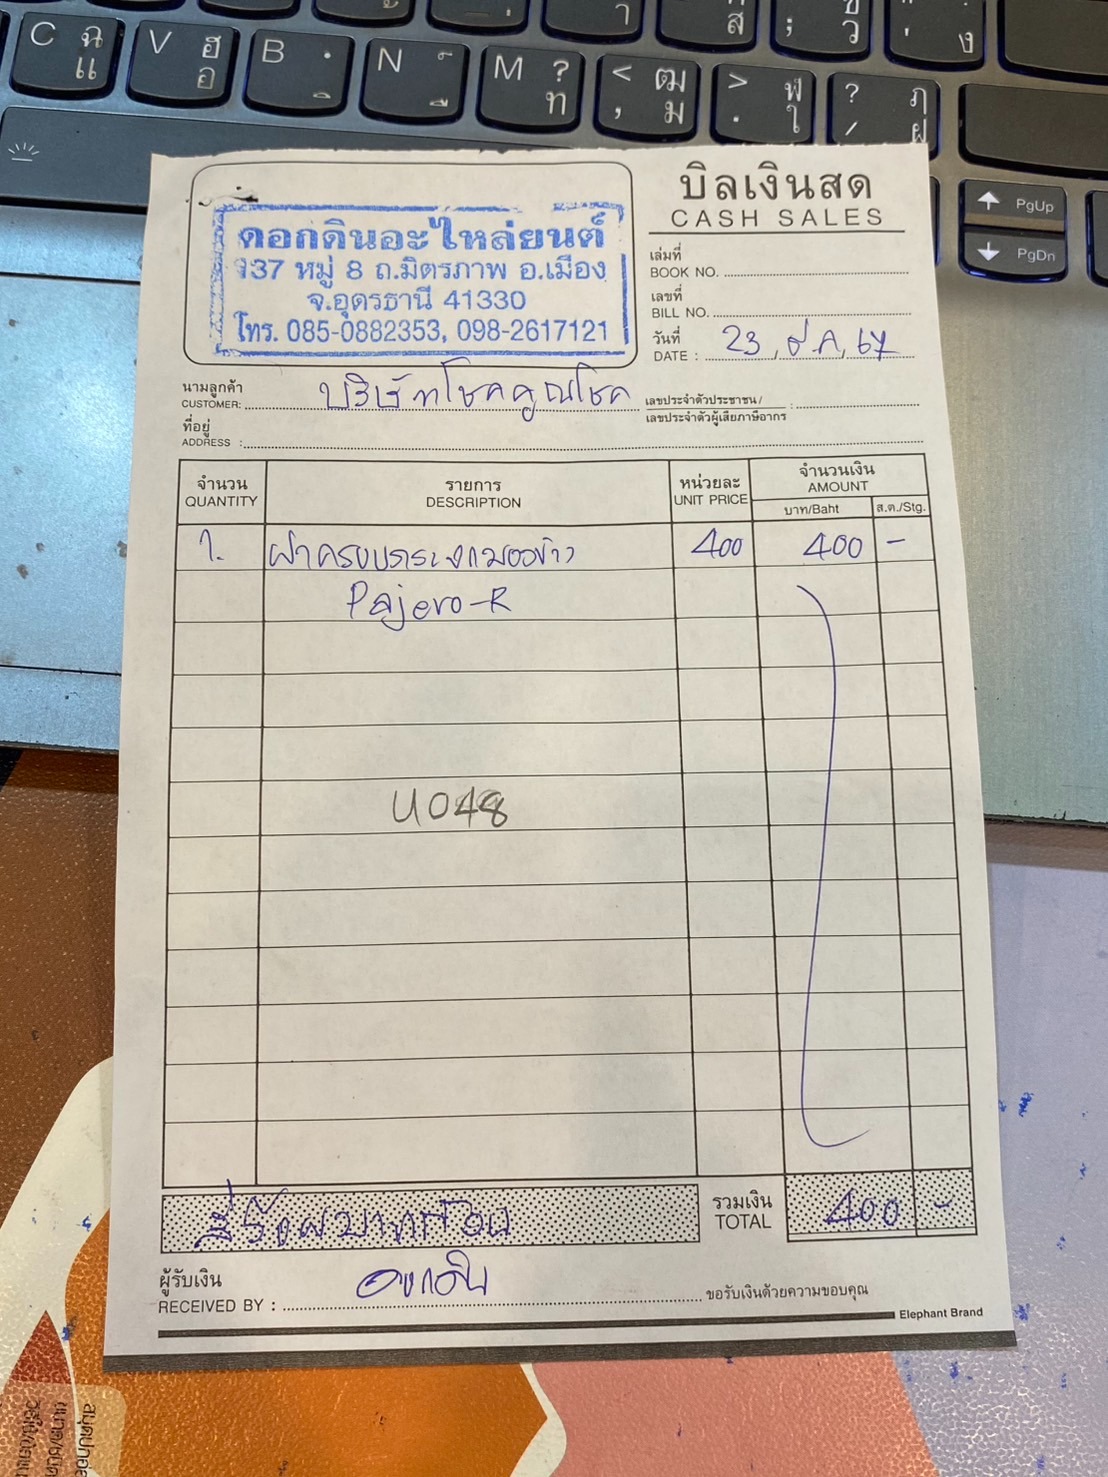 C ฉ แ
V ฮ อ
B ฺ ิ
N ์ ื
M ? ท
< ฒ , ม
> ฬ . ใ
? ฦ / ฝ
PgUp
PgDn
บิลเงินสด
CASH SALES
ดอกดินอะไหล่ยนต์
137 หมู่ 8 ถ.มิตรภาพ อ.เมือง
จ.อุดรธานี 41330
โทร. 085-0882353, 098-2617121
เล่มที่
BOOK NO.
เลขที่
BILL NO.
วันที่
DATE : 23 ธ.ค. 67
นามลูกค้า
CUSTOMER: บริษัทโชคคูณโชค
เลขประจำตัวประชาชน / :
เลขประจำตัวผู้เสียภาษีอากร
ที่อยู่
ADDRESS :
จำนวน รายการ หน่วยละ จำนวนเงิน
QUANTITY DESCRIPTION UNIT PRICE AMOUNT
บาท/Baht ส.ต./Stg.
1. ฝาครอบกระจกมองข้าง 400 400 -
Pajero-R
U048
สี่ร้อยบาทถ้วน
รวมเงิน
TOTAL 400 -
ผู้รับเงิน
RECEIVED BY :
ขอรับเงินด้วยความขอบคุณ
Elephant Brand